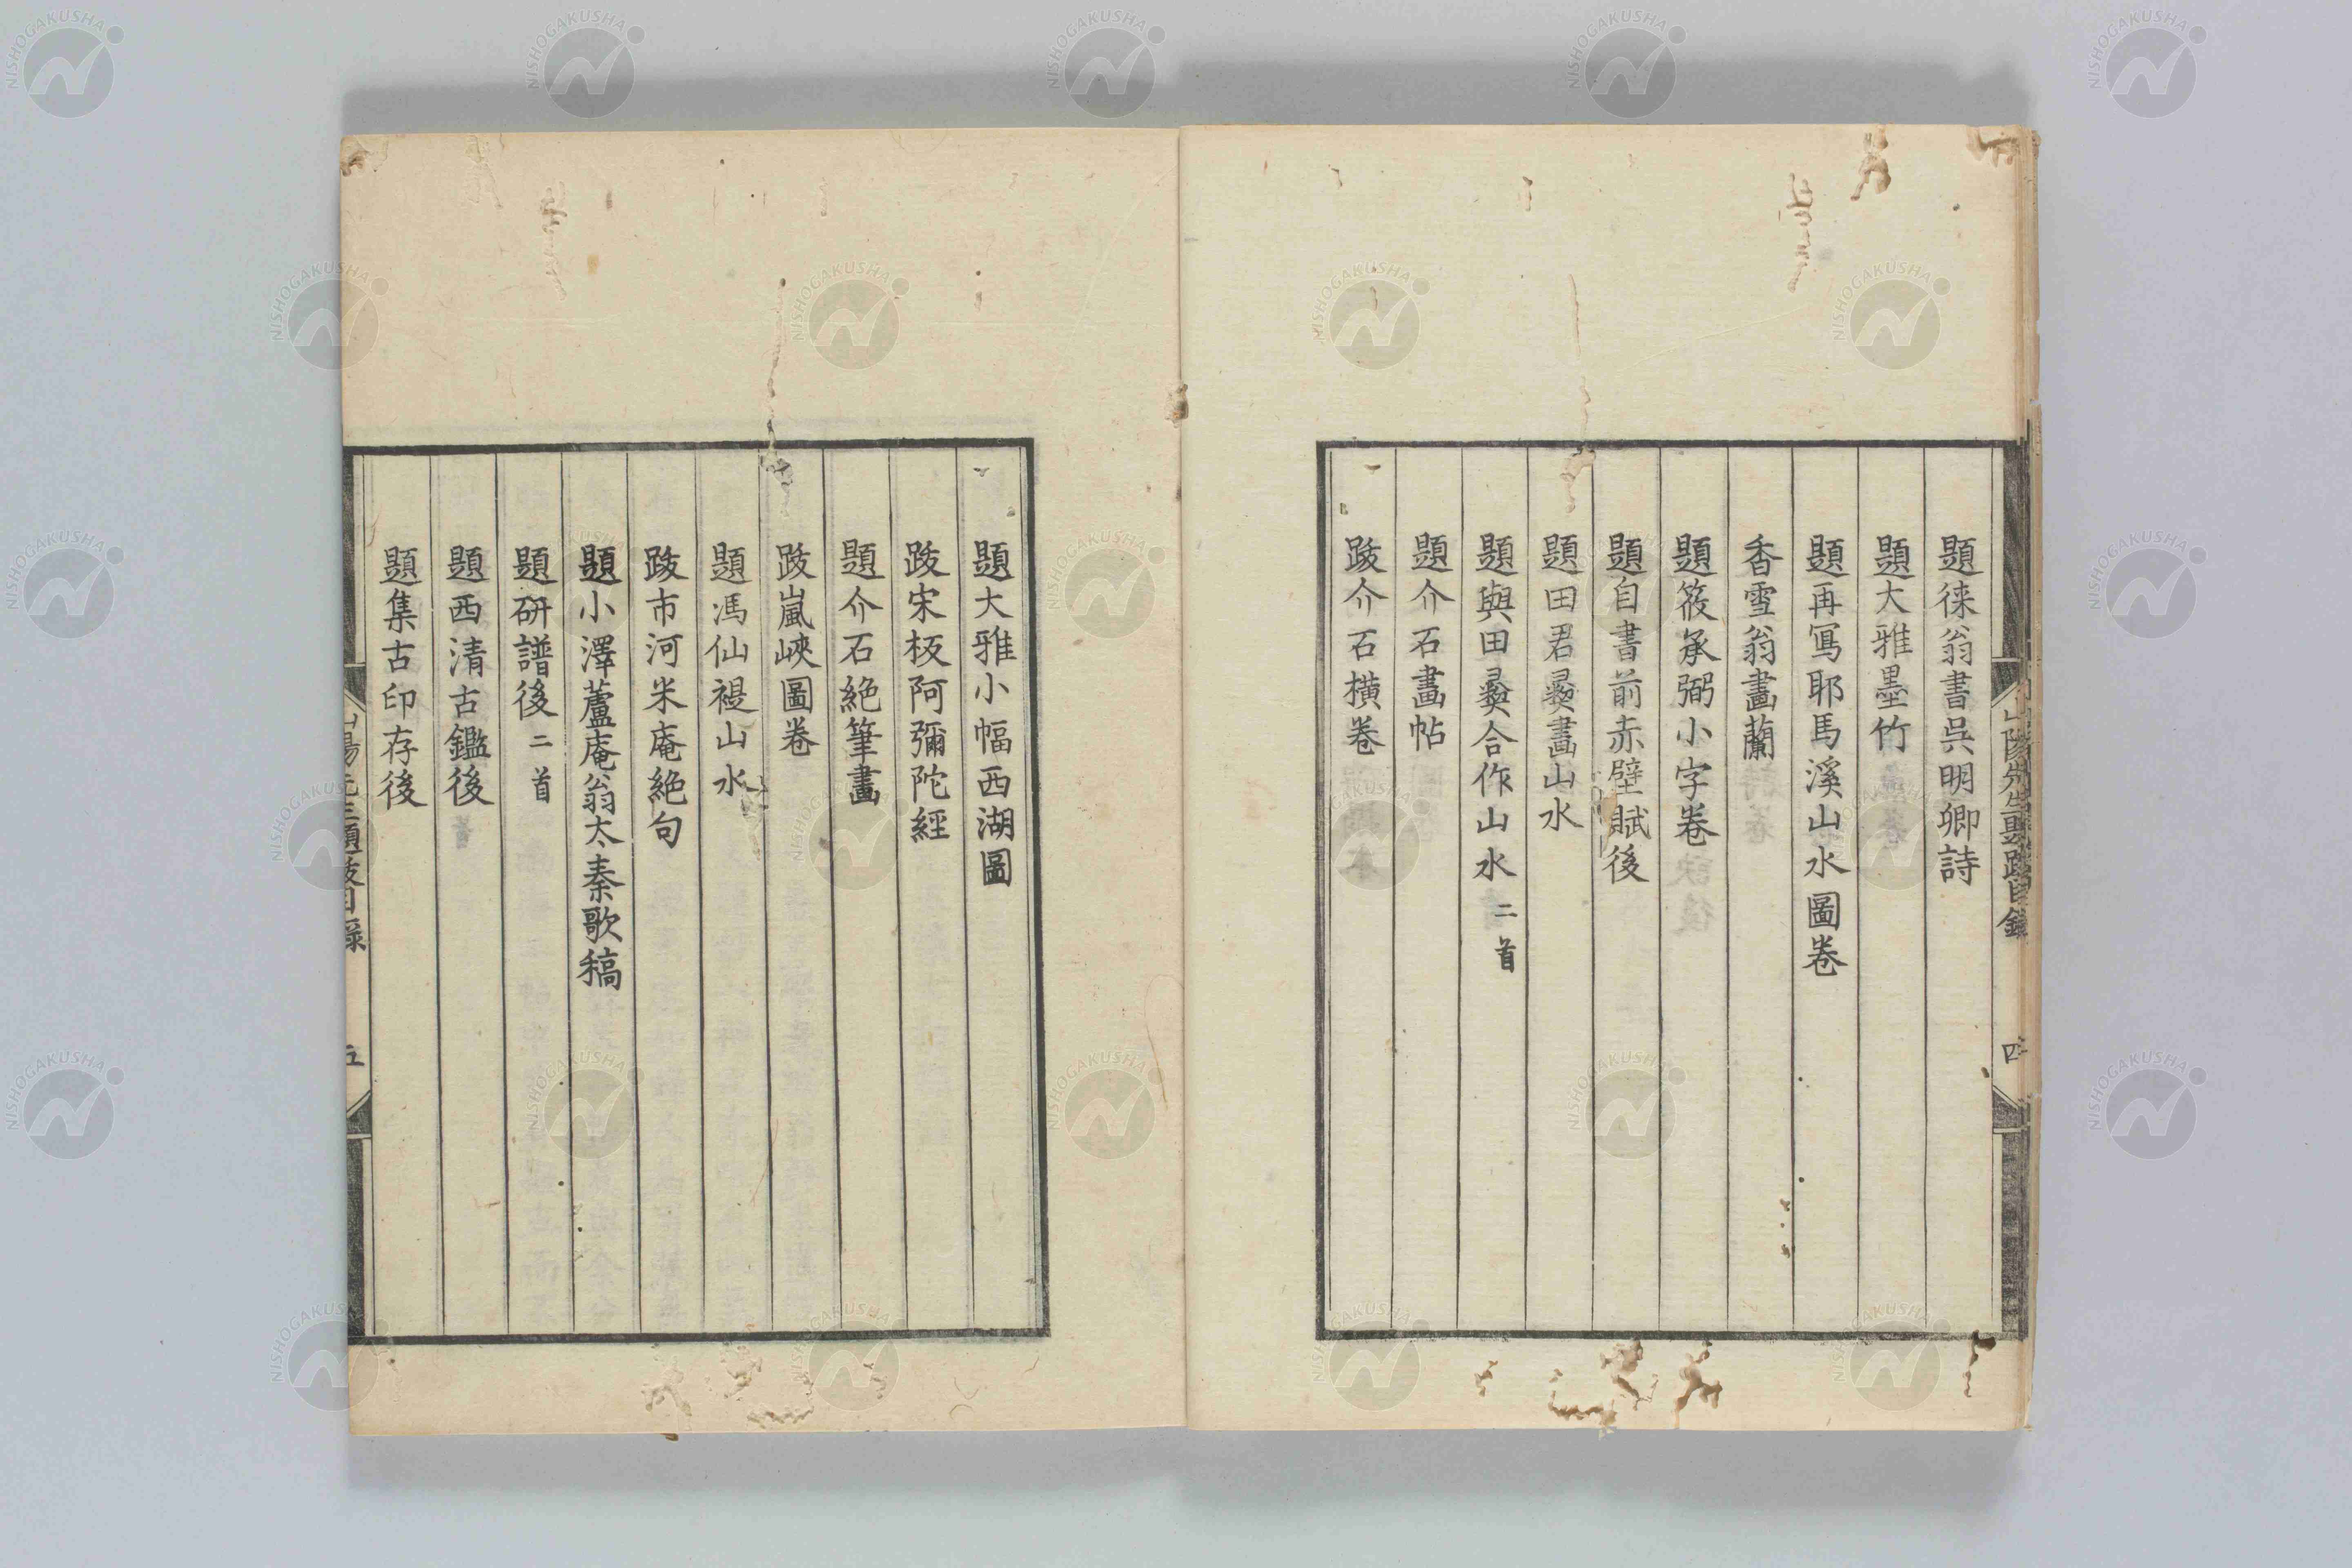 題徠翁書呉明卿詩
題大雅墨竹
題再寫耶馬溪山水圖卷
香雪翁畫蘭
題筱承弼小字卷
題自書前赤壁賦後
題田君彜畫山水
題與田彜合作山水二首
題介石畫帖
跋介石横卷
山陽先生題跋目錄 四
題大雅小幅西湖圖
跋宋板阿彌陀經
題介石絶筆畫
跋嵐峽圖卷
題馮仙禔山水
跋市河米庵絶句
題小澤蘆庵翁太秦歌稿
題研譜後二首
題西清古鑑後
題集古印存後
山陽先生題跋目錄 五
NISHOGAKUSHA